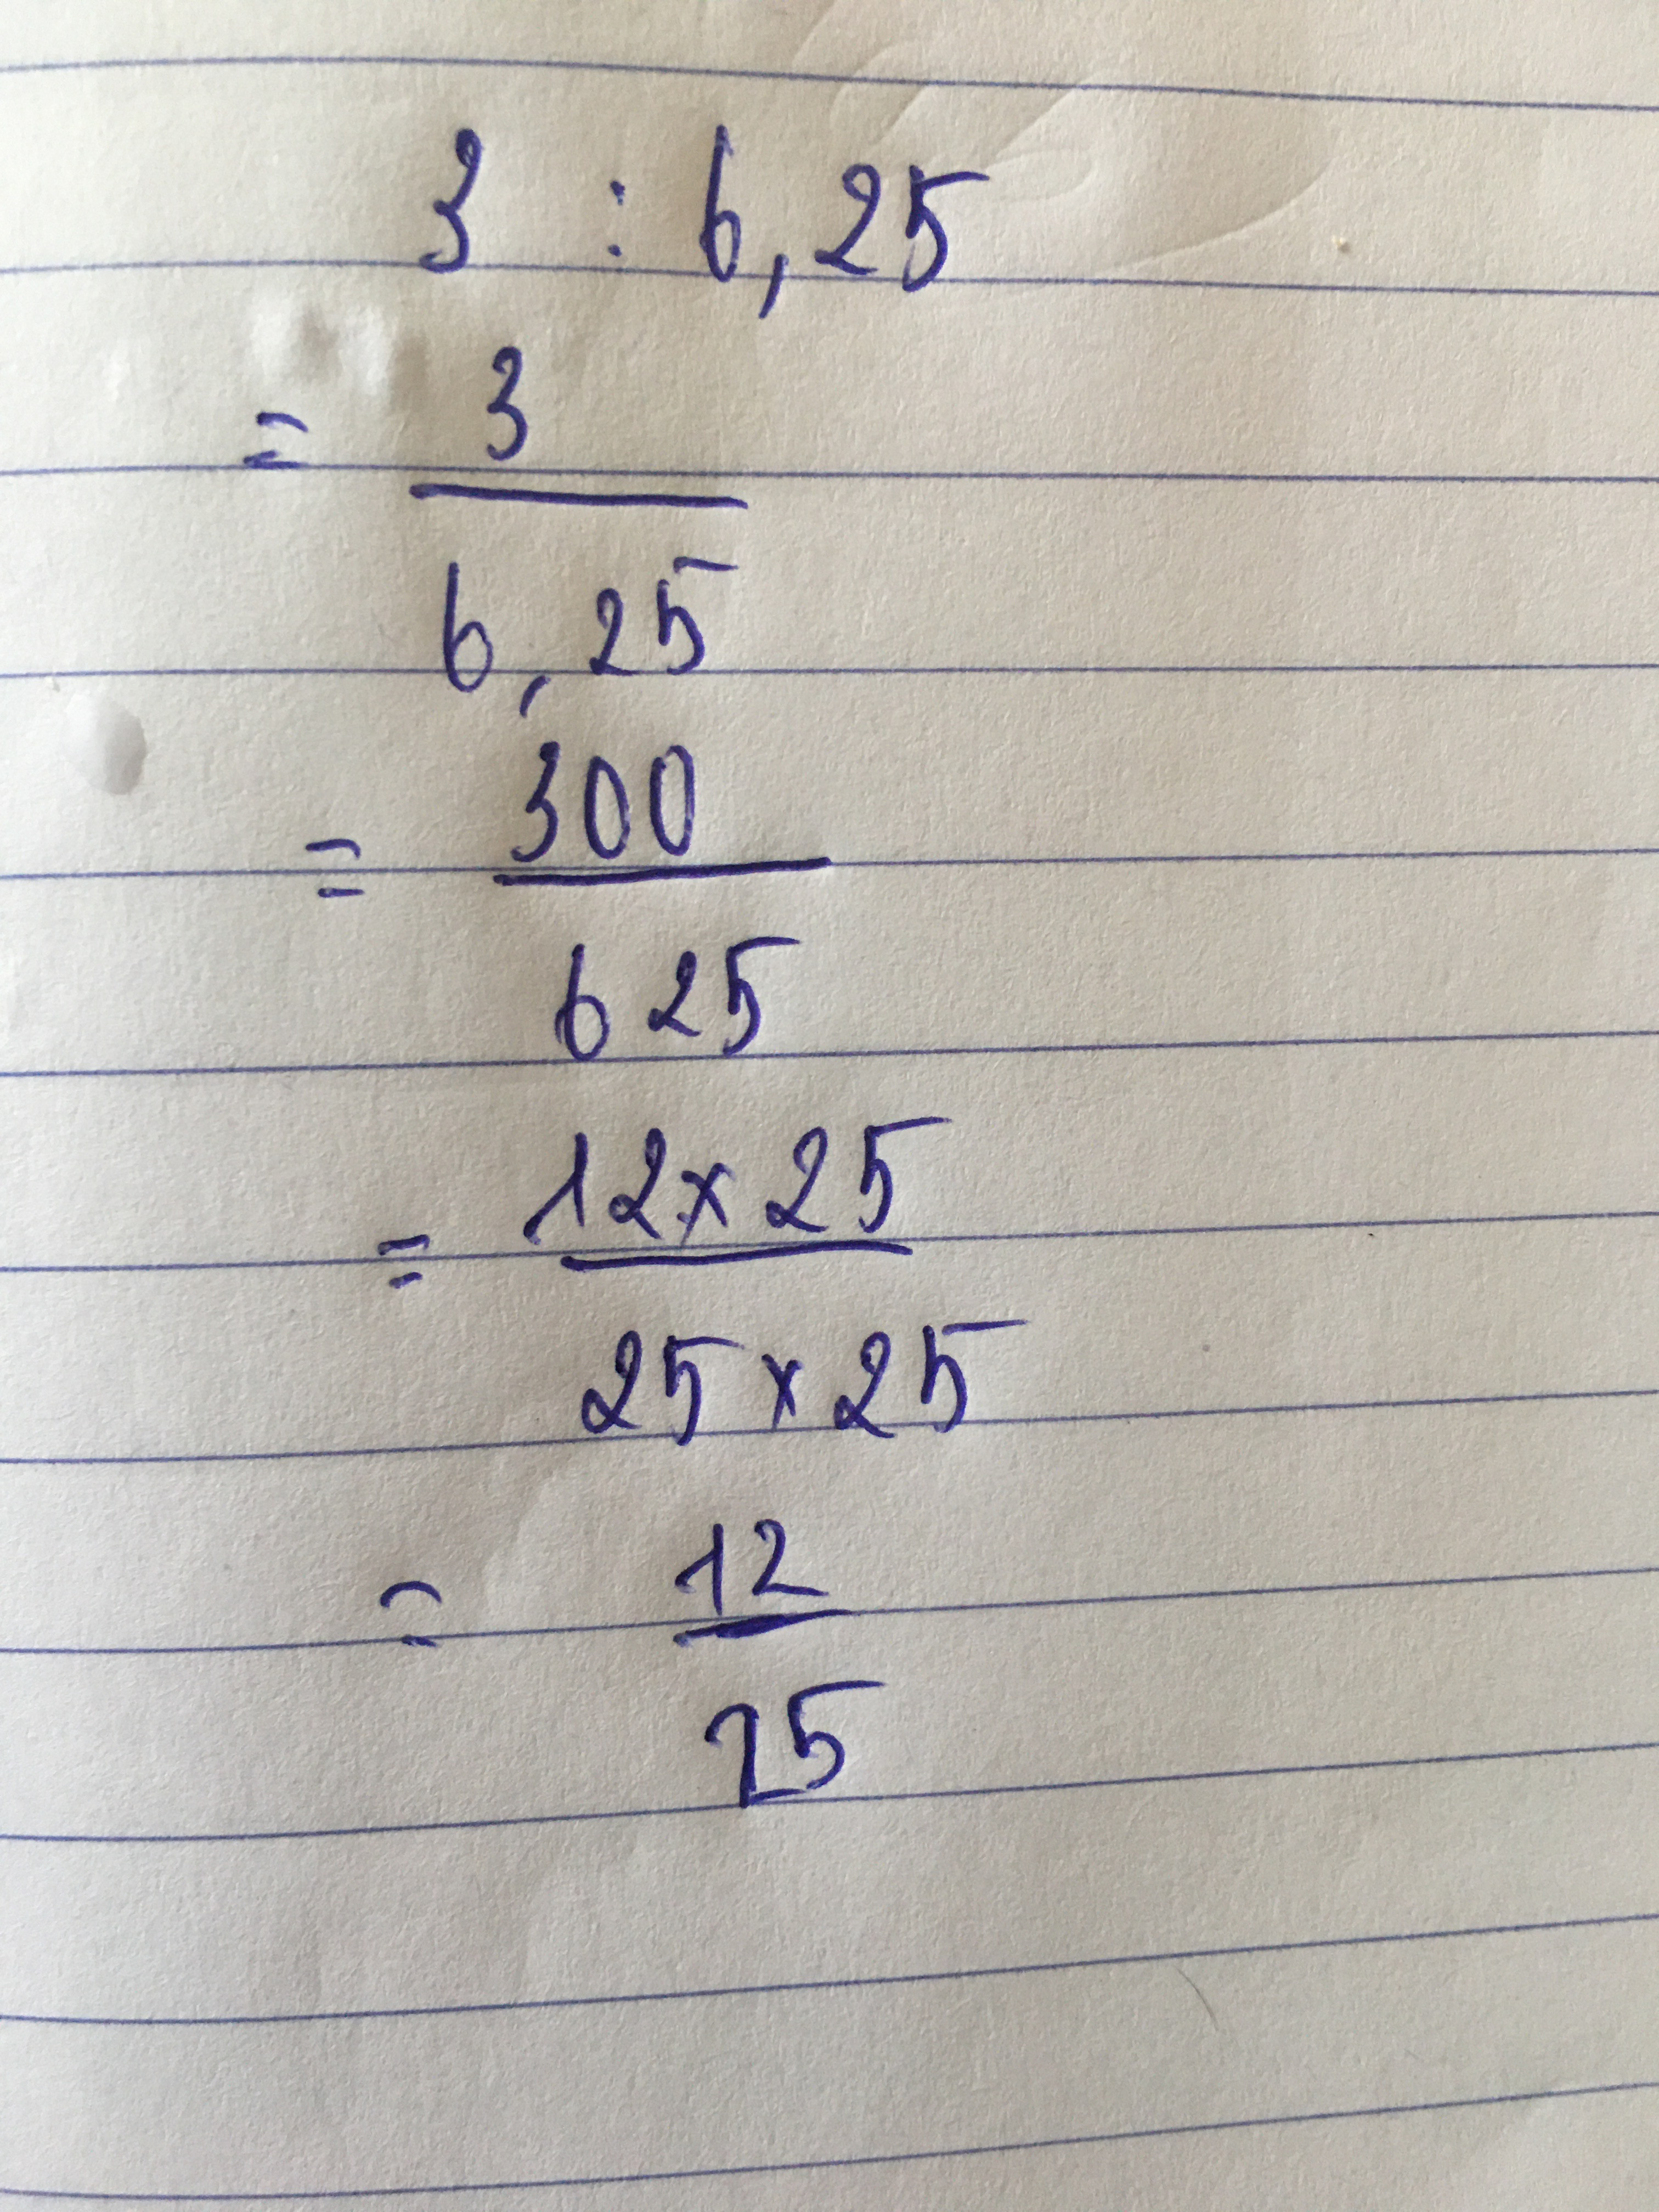 3 : 6,25
= 3
6,25
= 300
625
= 12 x 25
25 x 25
= 12
25